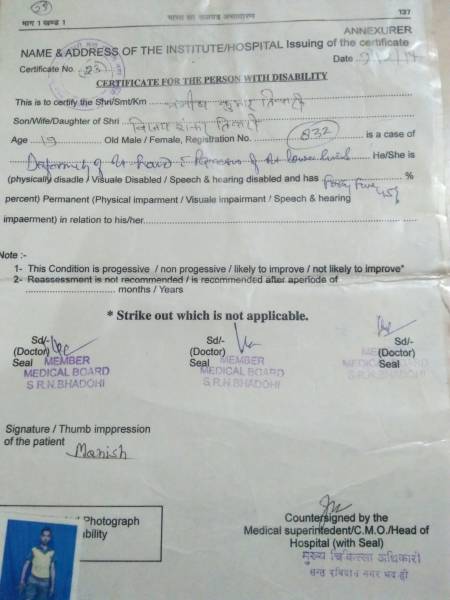 59
भाग 1 खण्ड 1
भारत का राजपत्र असाधारण
137
ANNEXURER
NAME & ADDRESS OF THE INSTITUTE/HOSPITAL Issuing of the certificate
Certificate No. 231
Date
CERTIFICATE FOR THE PERSON WITH DISABILITY
This is to certify the Shri/Smt/Km मनीष कुमार तिवारी
Son/Wife/Daughter of Shri विजय शंकर तिवारी
Age 19 Old Male / Female, Registration No. 832 is a case of
Deformity of Rt hand & of Rt lower limb He/She is
(physically disadle / Visuale Disabled / Speech & hearing disabled and has Forty Five 45% %
percent) Permanent (Physical imparment / Visuale impairmant / Speech & hearing
impaerment) in relation to his/her
Note :-
1- This Condition is progessive / non progessive / likely to improve / not likely to improve*
2- Reassessment is not recommended / is recommended after aperiode of
months / Years
* Strike out which is not applicable.
Sd/- Sd/- Sd/-
(Doctor) (Doctor) (Doctor)
Seal MEMBER Seal MEMBER Seal
MEDICAL BOARD MEDICAL BOARD MEDICAL BOARD
S.R.N.BHADOHI S.R.N.BHADOHI S.R.N.BHADOHI
Signature / Thumb imppression
of the patient
Manish
Photograph
bility
Countersigned by the
Medical superintedent/C.M.O./Head of
Hospital (with Seal)
मुख्य चिकित्सा अधिकारी
सन्त रविदास नगर भदोही